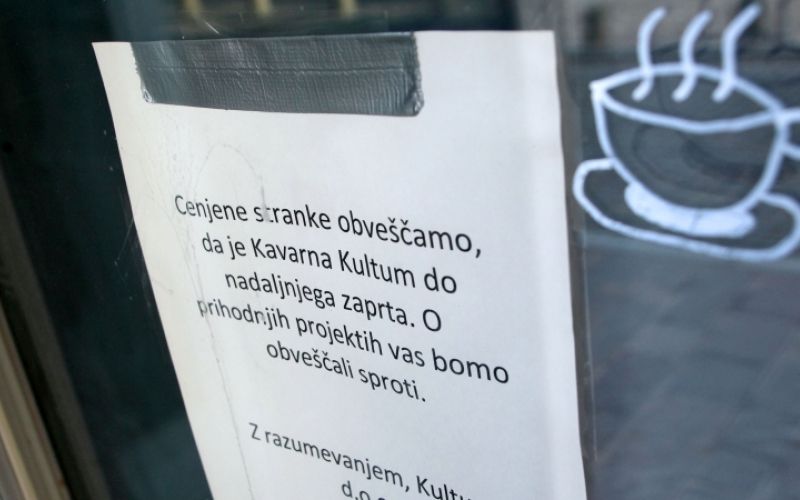 Cenjene stranke obveščamo,
da je Kavarna Kultum do
nadaljnjega zaprta. O
prihodnjih projektih vas bomo
obveščali sproti.
Z razumevanjem, Kultu
d.o